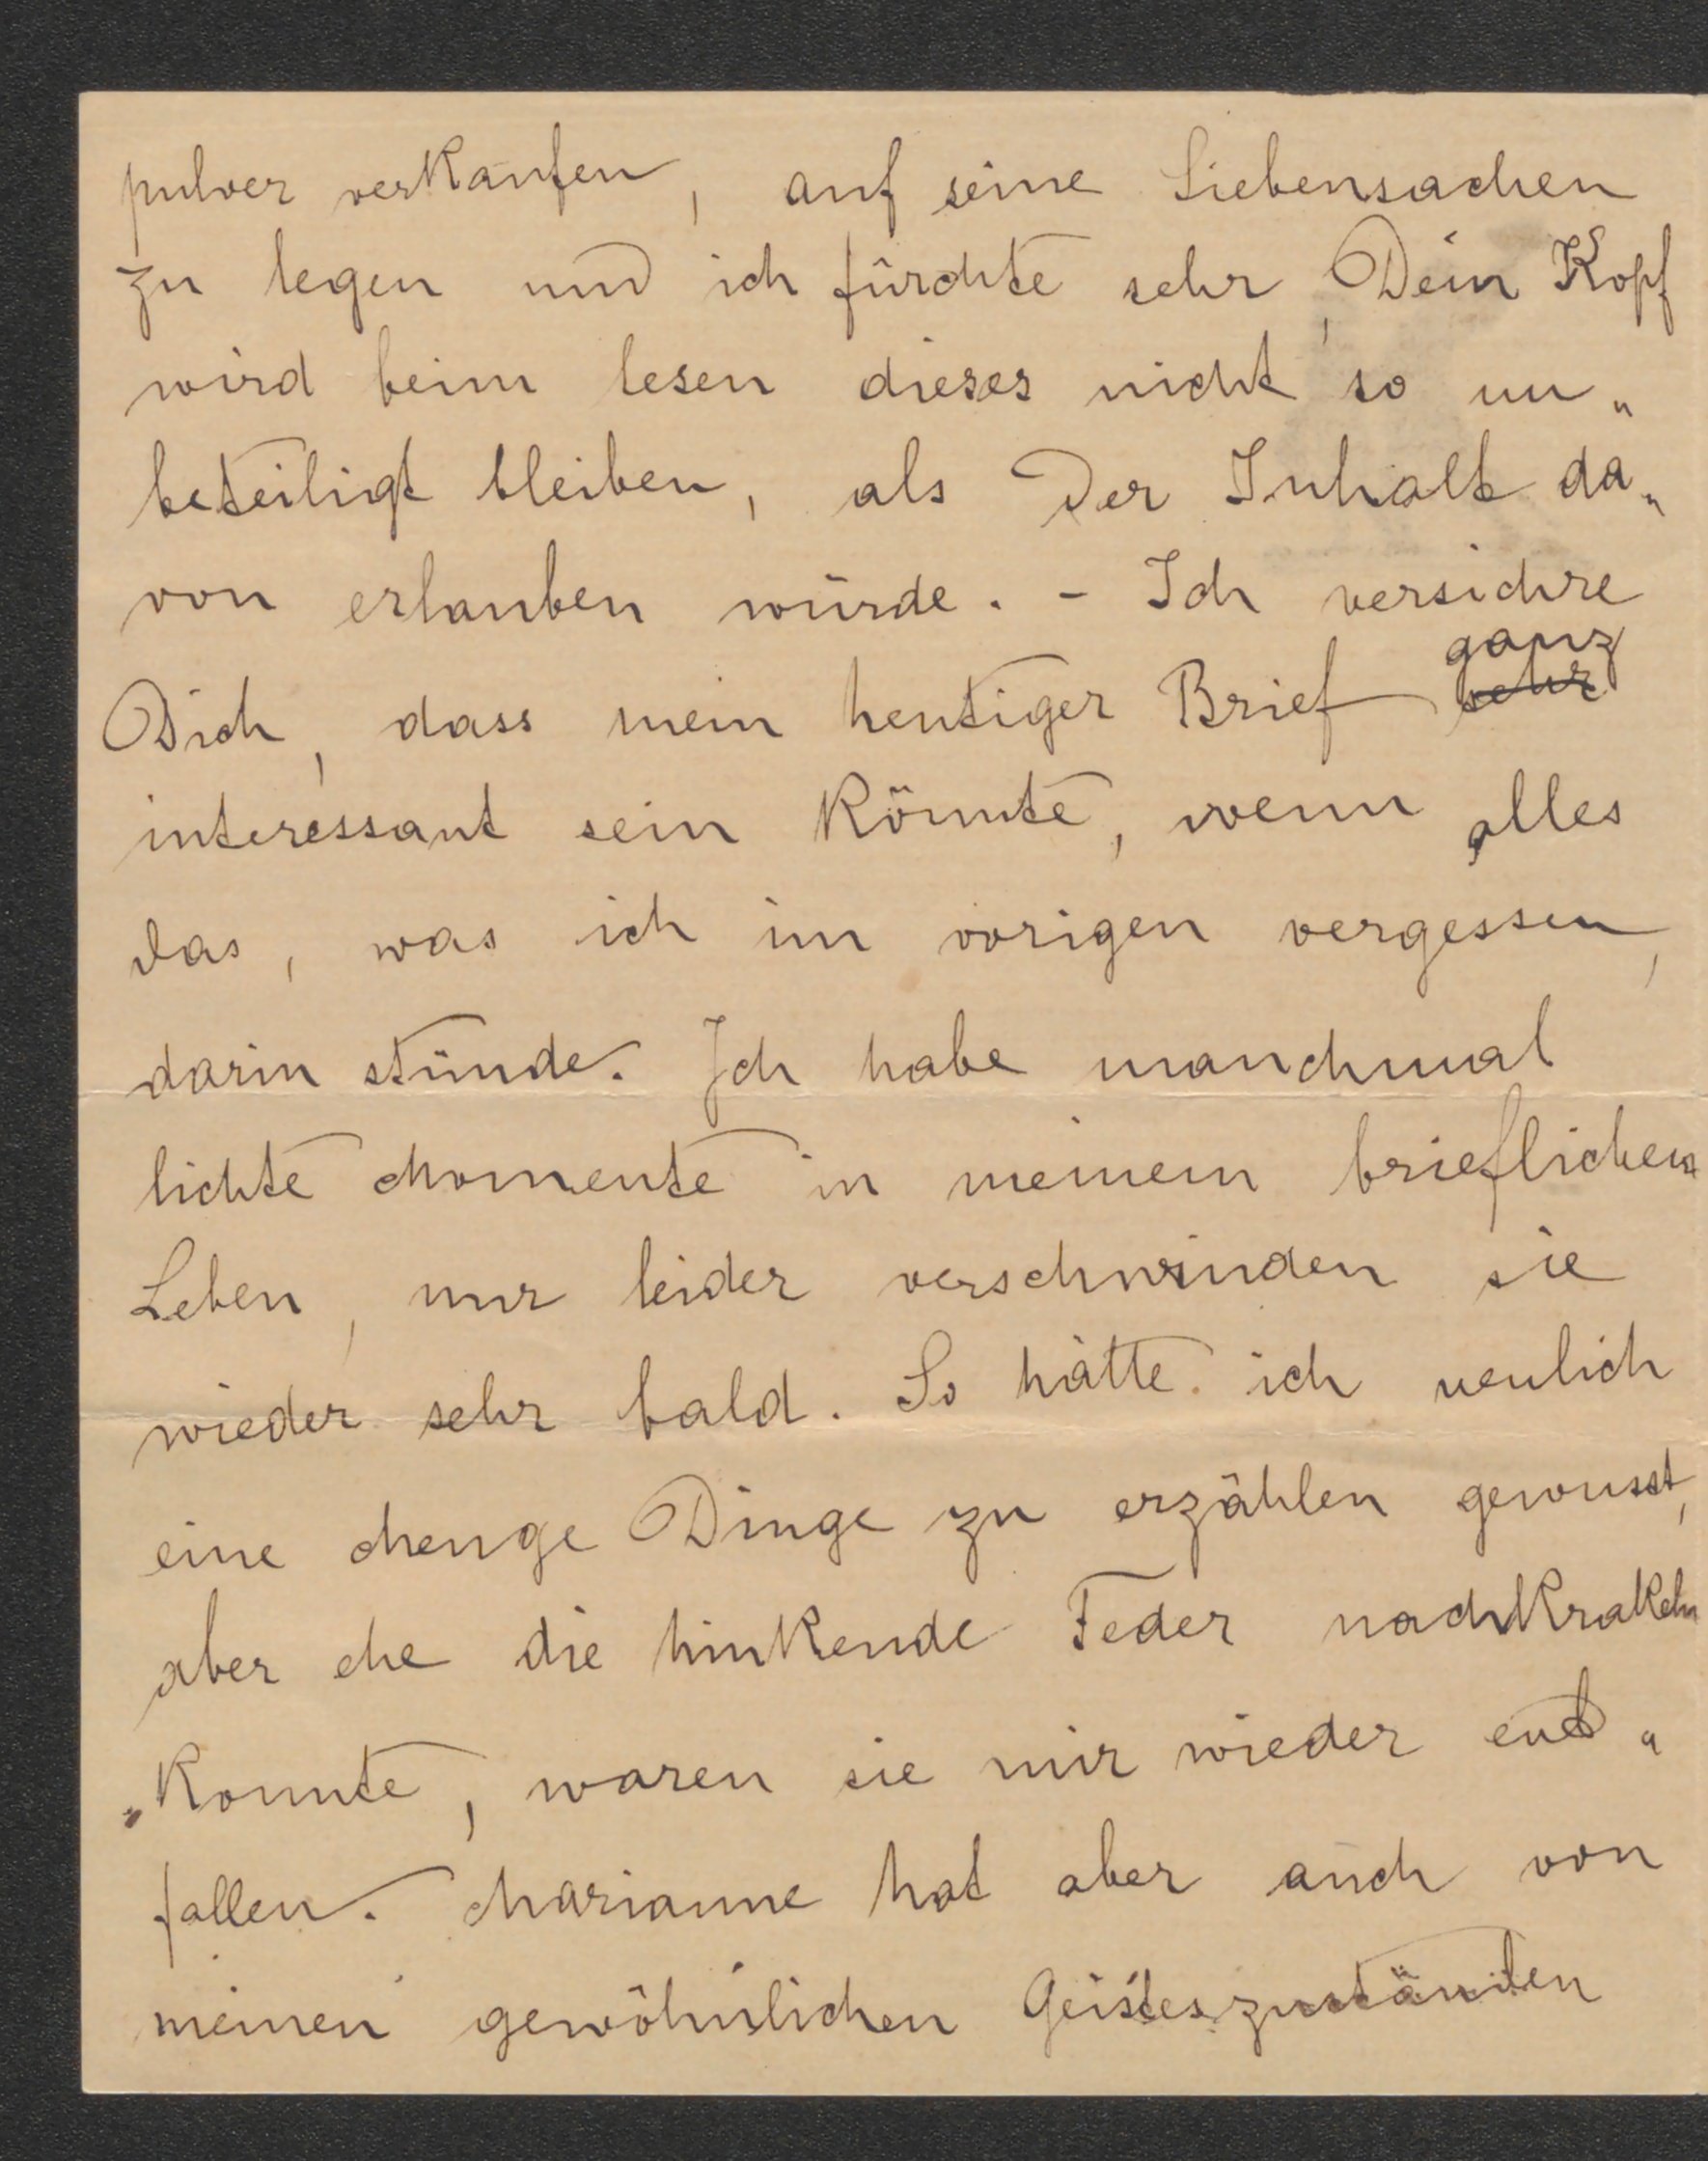 pulver verkaufen, auf seine Siebensachen
zu legen und ich fürchte sehr, Dein Kopf
wird beim lesen dieses nicht so un„
beteiligt bleiben, als der Inhalt da„
von erlauben würde. - Ich versichre
Dich, dass mein heutiger Brief ~~sehr~~ ganz
interessant sein könnte, wenn alles
das, was ich im vorigen vergessen,
darin stünde. Ich habe manchmal
lichte Momente in meinem brieflichen
Leben, nur leider verschwinden sie
wieder sehr bald. So hätte ich neulich
eine Menge Dinge zu erzählen gewusst,
aber ehe die hinkende Feder nachkrakeln
konnte, waren sie mir wieder ent„
fallen. Marianne hat aber auch von
meinen gewöhnlichen Geisteszuständen